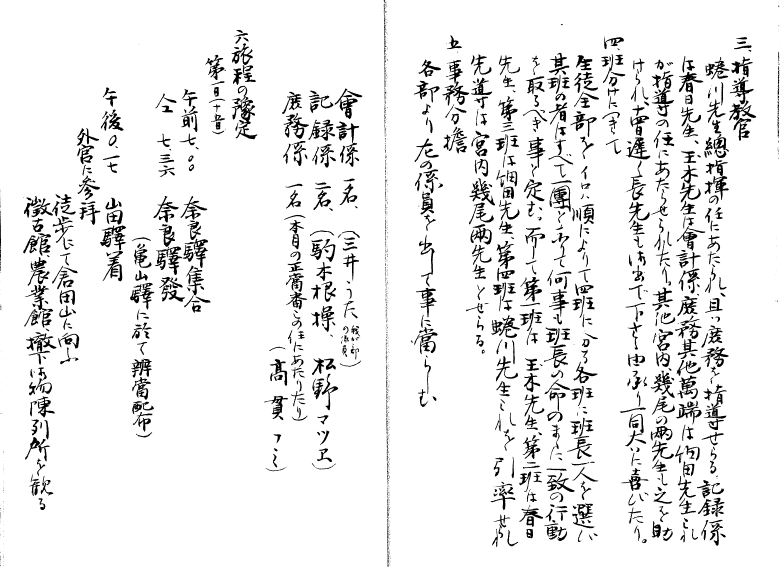 三、指導教官
蜷川先生總指揮の任にあたられ、且つ庶務を指導せらる。記録係
は春日先生、玉木先生は會計係、庶務其他萬端は佃田先生これ
が指導の任にあたらせられたり。其他宮内、幾尾の両先生も之を助
けられ、曽遅く長先生も御出で下さる由承り一同大いに喜びたり。
四、班分けにつきて
生徒全部をイロハ順によりて四班に分ち各班に班長一人を選び
其班の者はすべて一團となりて何事も班長の命のまに一致の行動
を取るべき事と定む。而して第一班は玉木先生、第二班は春日
先生、第三班は佃田先生、第四班は蜷川先生これを引率せられ
先導は宮内幾尾両先生とせらる。
五、事務分擔
各部より左の係員を出して事に當らしむ
會計係 一名、(三井うた 部の係員)
記録係 二名、(駒木根操、松野マツヱ)
庶務係 一名(本月の正當番この任にあたりたり)
(高貫フミ)
六、旅程の豫定
第一日(十五日)
午前七.〇〇 奈良驛集合
仝 七.三六 奈良驛發
(亀山驛に於て辨當配布)
午後〇.一七 山田驛着
外宮に參拜
徒歩にて倉田山に向ふ
徴古館、農業館、撤下御物陳列所を観る